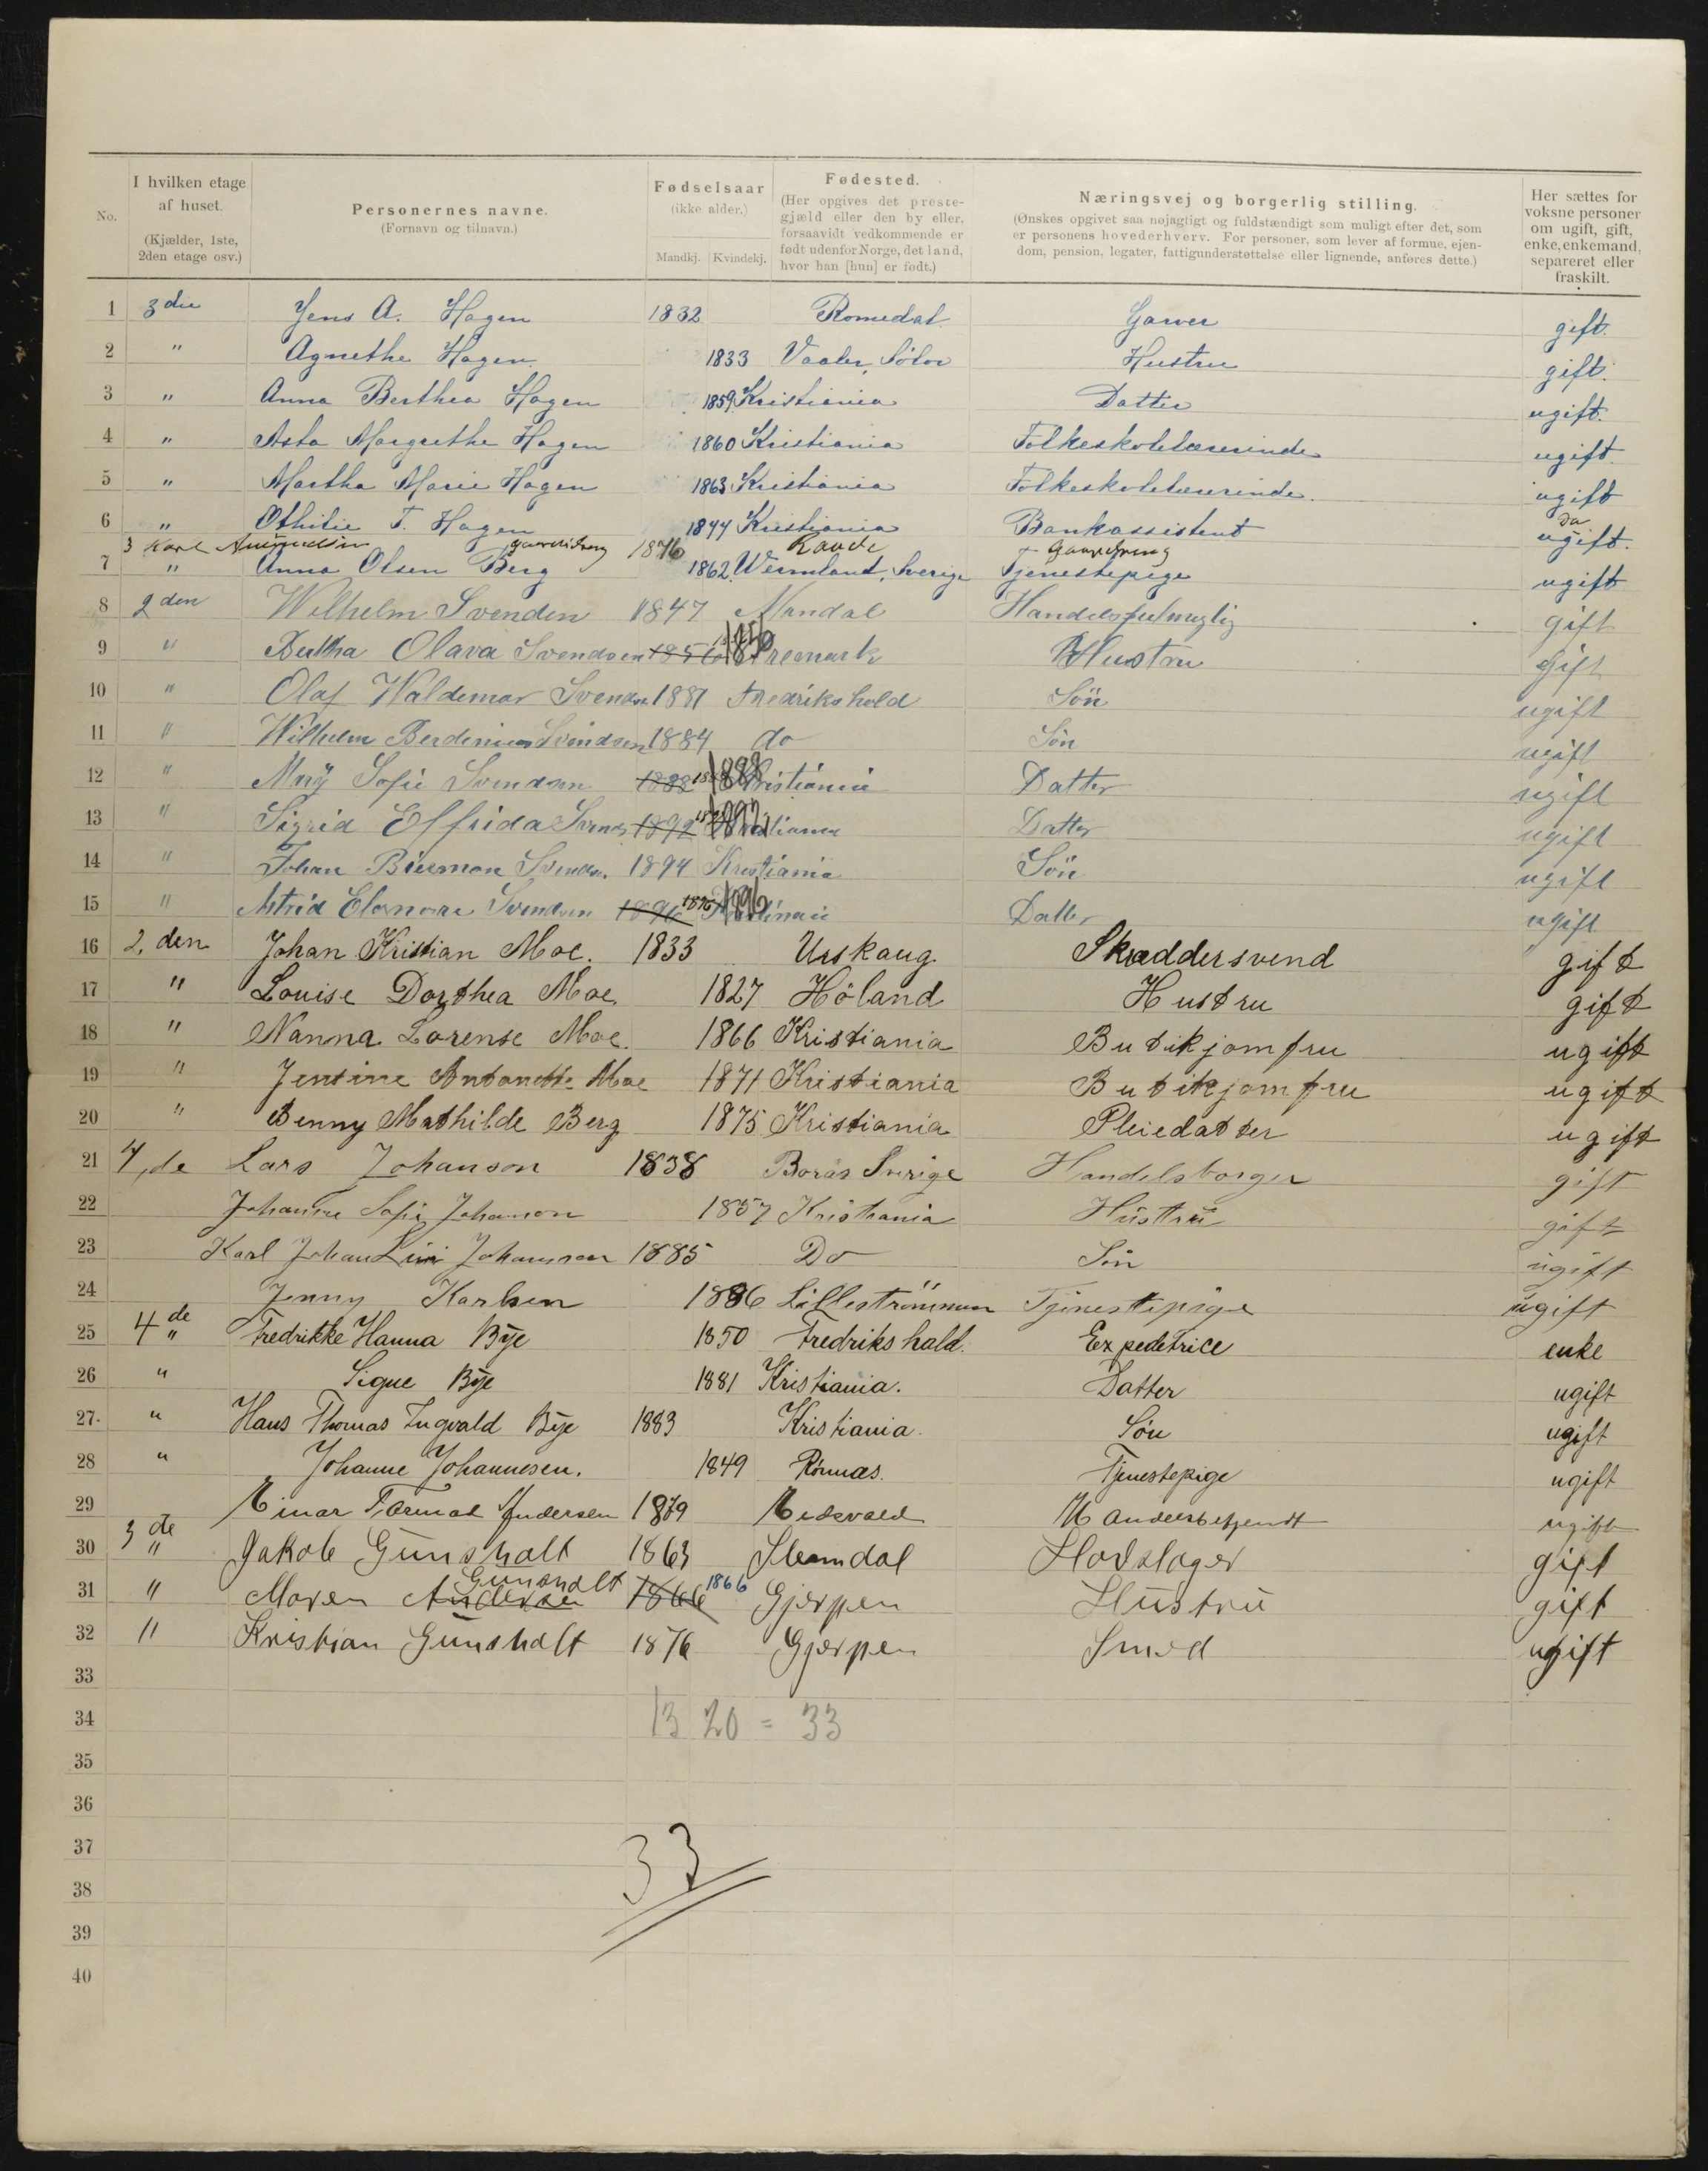 No.
I hvilken etage af huset. (Kjælder, 1ste, 2den etage osv.)
Personernes navne. (Fornavn og tilnavn.)
Fødselsaar (ikke alder.) Mandkj. Kvindekj.
Fødested. (Her opgives det prestegjæld eller den by eller, forsaavidt vedkommende er født udenfor Norge, det land, hvor han [hun] er født.)
Næringsvej og borgerlig stilling. (Ønskes opgivet saa nøjagtigt og fuldstændigt som muligt efter det, som er personens hovederhverv. For personer, som lever af formue, ejendom, pension, legater, fattigunderstøttelse eller lignende, anføres dette.)
Her sættes for voksne personer om ugift, gift, enke, enkemand, separeret eller fraskilt.
1 3die Jens A. Hagen 1832 Romedal Garver gift.
2 " Agnethe Hagen 1833 Vaaler, Solør Hustru gift.
3 " Anna Berthea Hagen 1859 Kristiania Datter ugift.
4 " Asta Margrethe Hagen 1860 Kristiania Folkeskolelærerinde ugift.
5 " Martha Marie Hagen 1863 Kristiania Folkeskolelærerinde. ugift
6 " Othilie T. Hagen 1844 Kristiania Bankassistent ugift.
3 Karl 1876 Raade Da
7 " Anna Olsen Berg 1862. Wermland, Sverige Tjenestepige ugift
8 2den Wilhelm Svenden 1847 Mandal Handelsfuldmægtig gift
9 " Bertha Olava Svendsen 1856 1856 Aremark Hustru gift
10 " Olaf Waldemar Svendsen 1881 Fredrikshald Sön ugift
11 " Wilhelm Svendsen 1884 do Sön ugift
12 " Mary Sofie Svendsen 1888 1888 Kristiania Datter ugift
13 " Sigrid Elfrida Svends 1892 1892 Kristiania Datter ugift
14 " Johan Svendsen 1894 Kristiania Sön ugift
15 " Astrid Elonora Svendsen 1896 1896 Kristinaia Datter ugift
16 2,den Johan Kristian Moe. 1833 Urskaug Skræddersvend gift
17 " Louise Dorthea Moe. 1827 Höland Hustru gift
18 " Nanna Lorense Moe. 1866 Kristiania Butikjomfru ugift
19 " Jensine Antonette Moe 1871 Kristiania Butikjomfru ugift
20 " Benny Mathilde Berg 1875 Kristiania Pleiedatter ugift
21 4,de Lars Johanson 1838 Borås Sverige Handelsborger gift
22 Johanne Sofie Johanson 1857 Kristiania Hustru gift
23 Karl Johan Johannsen 1885 Do Sön ugift
24 Jenny Karlsen 1886 Lilleströmmen Tjenestepige ugift
25 4de " Fredrikke Hanna Bye 1850 Fredrikshald. Expedetrice enke
26 " Signe Bye 1881 Kristiania. Datter ugift
27. " Hans Thomas Ingvald Bye 1883 Kristiania. Søn ugift
28 " Johanne Johannesen. 1849 Rømnæs. Tjenestepige ugift
29 Einar Andersen 1879 Eidsvold Handelsbetjendt ugift
30 3de " Jakob Gunsholt 1863 Slemdal Hovslager gift
31 " Maren Andersen Gunsholt 1866 1866 Gjerpen Hustru gift
32 " Kristian Gunsholt 1876 Gjerpen Smed ugift
33
34 13 20 = 33
35
36
37 33
38
39
40